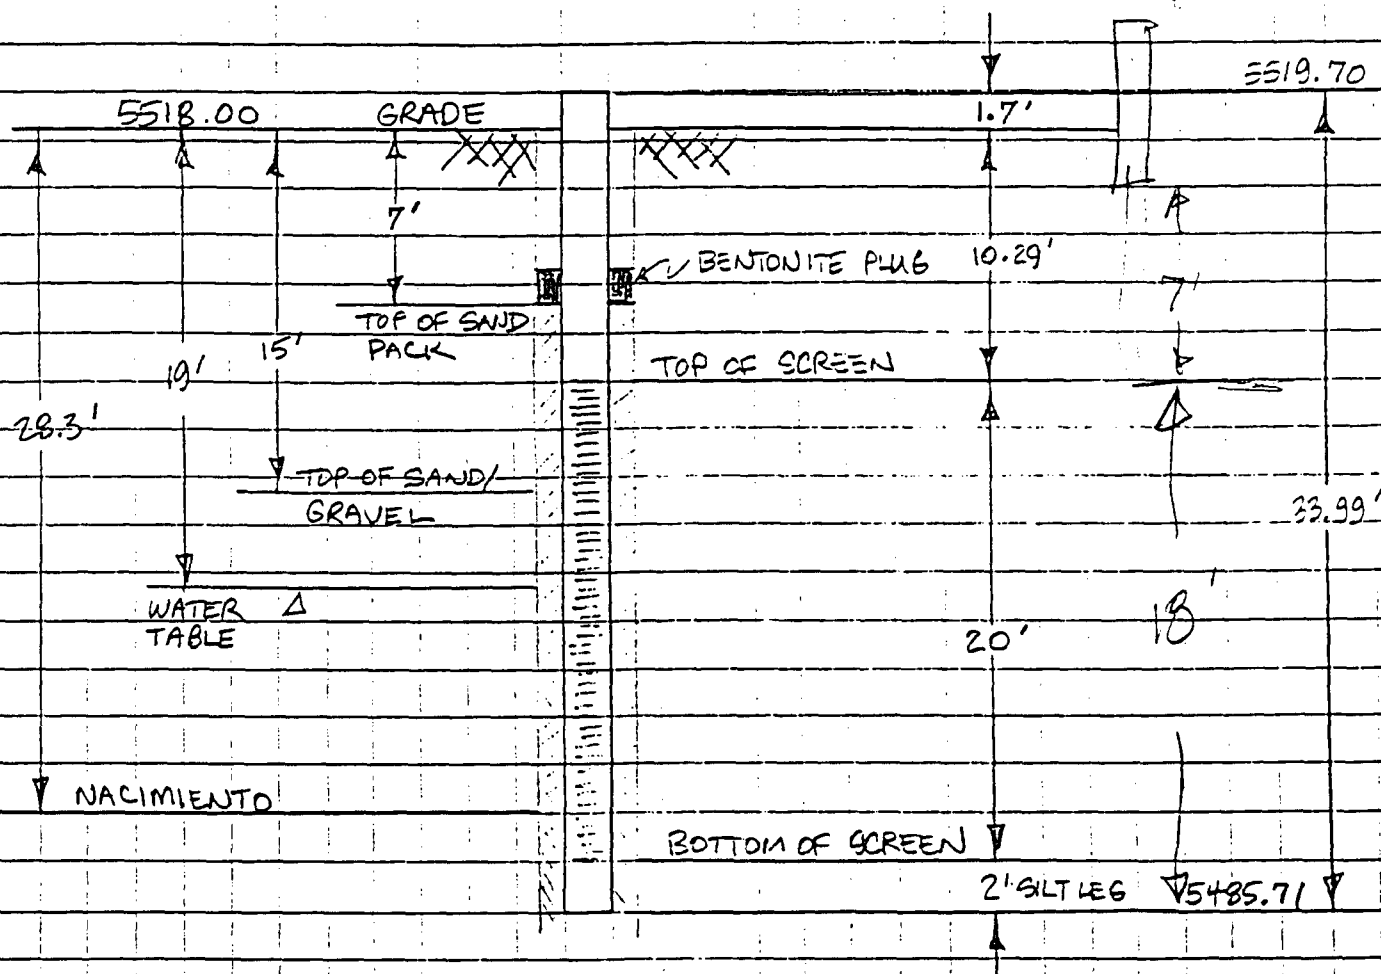 5519.70
5518.00 GRADE 1.7'
7'
BENTONITE PLUG 10.29'
7'
TOP OF SAND
PACK
15'
19'
TOP OF SCREEN
28.3'
TOP OF SAND/
GRAVEL
33.99'
WATER
TABLE
20'
18'
NACIMIENTO
BOTTOM OF SCREEN
2' SILT LEG 5485.71